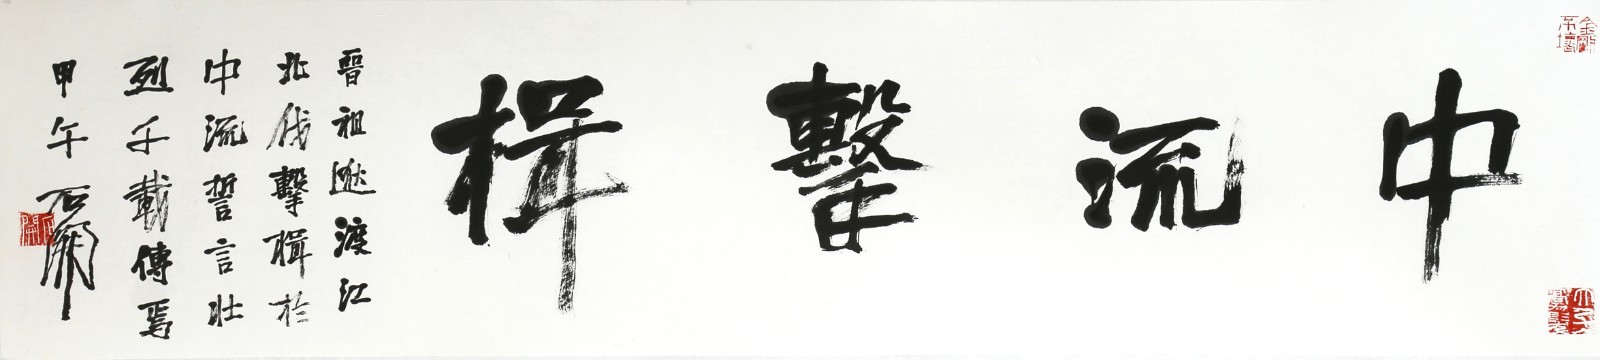 中流擊楫
晋祖逖渡江
北伐擊楫於
中流誓言壯
烈千載傳焉
甲午石開